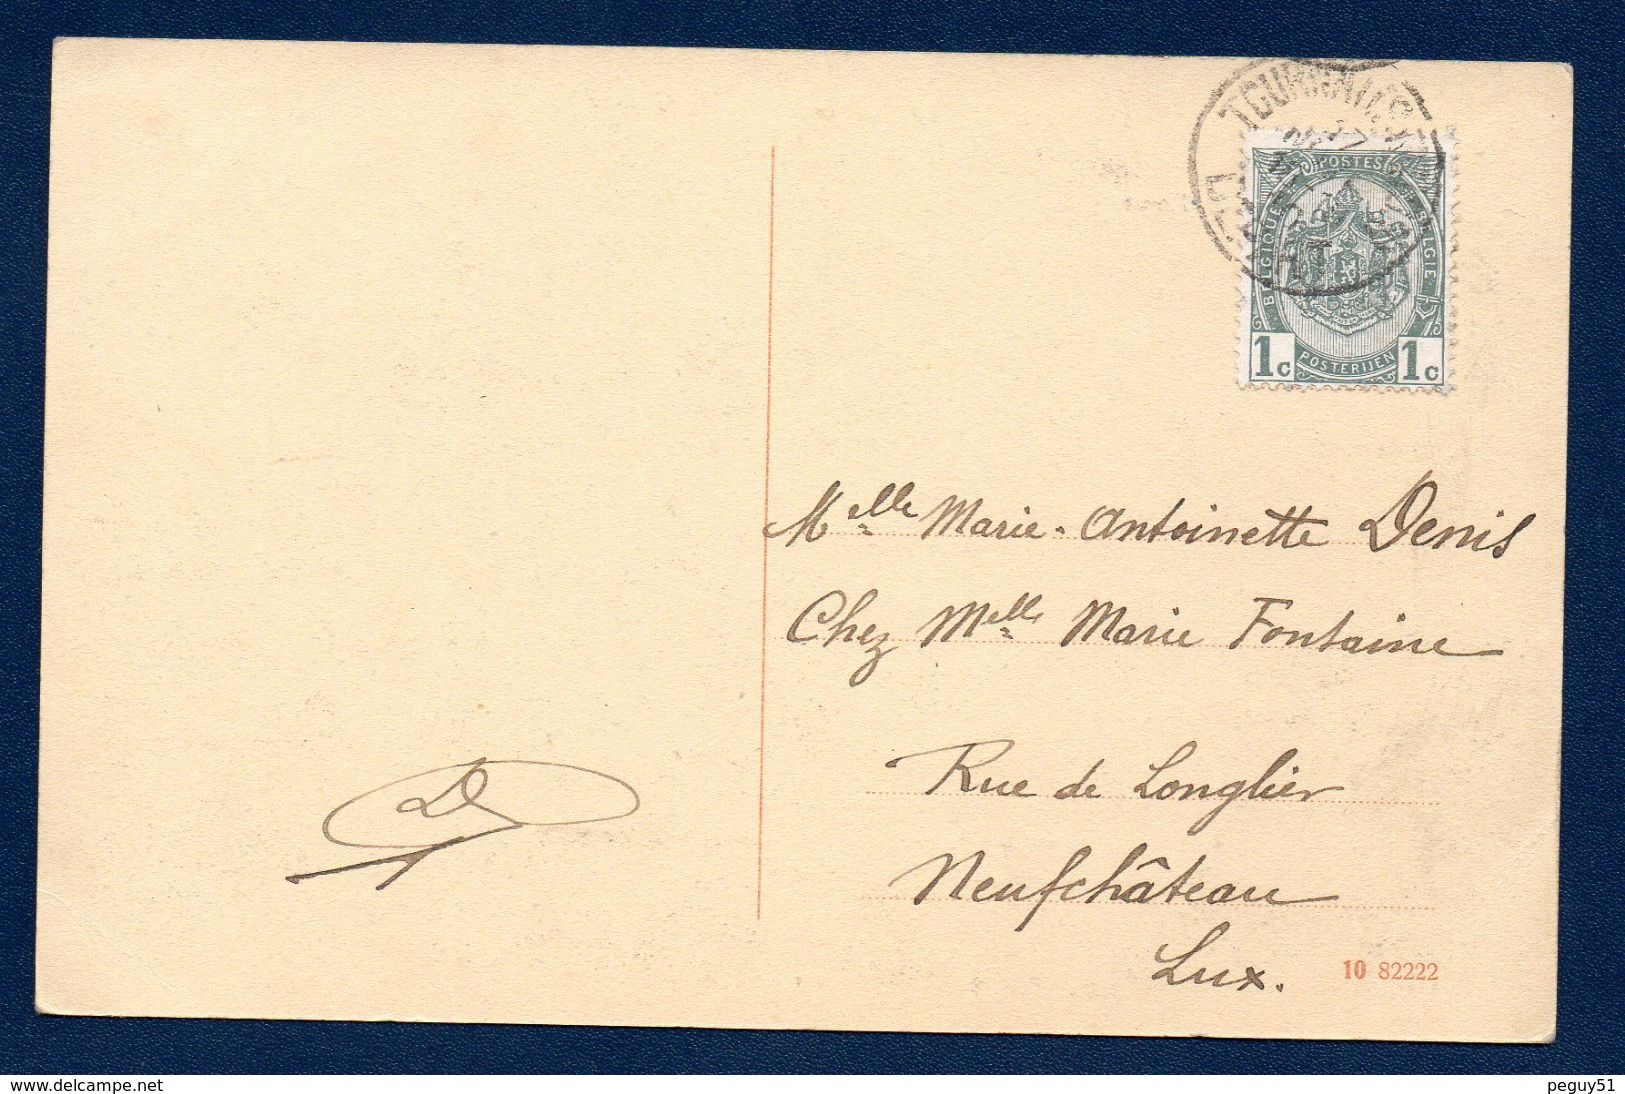 TOURNAI
POSTES
BELGIQUE
BELGIE
1c POSTERIJEN 1c
Melle Marie-Antoinette Denis
Chez Melle Marie Fontaine
Rue de Longlier
Neufchâteau
Lux.
D
10 82222
www.delcampe.net
peguy51